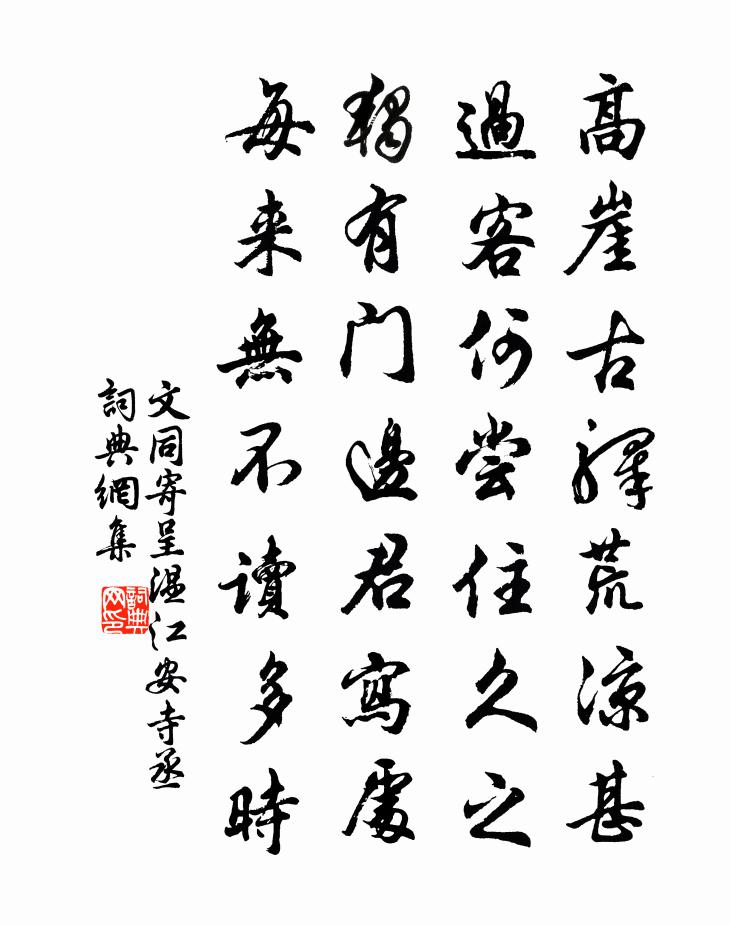 高崖古驛荒涼甚
過客何嘗住久之
獨有門邊君寫處
每来無不讀多時
文同寄呈溫江安寺丞
詞典網集
詞典网印